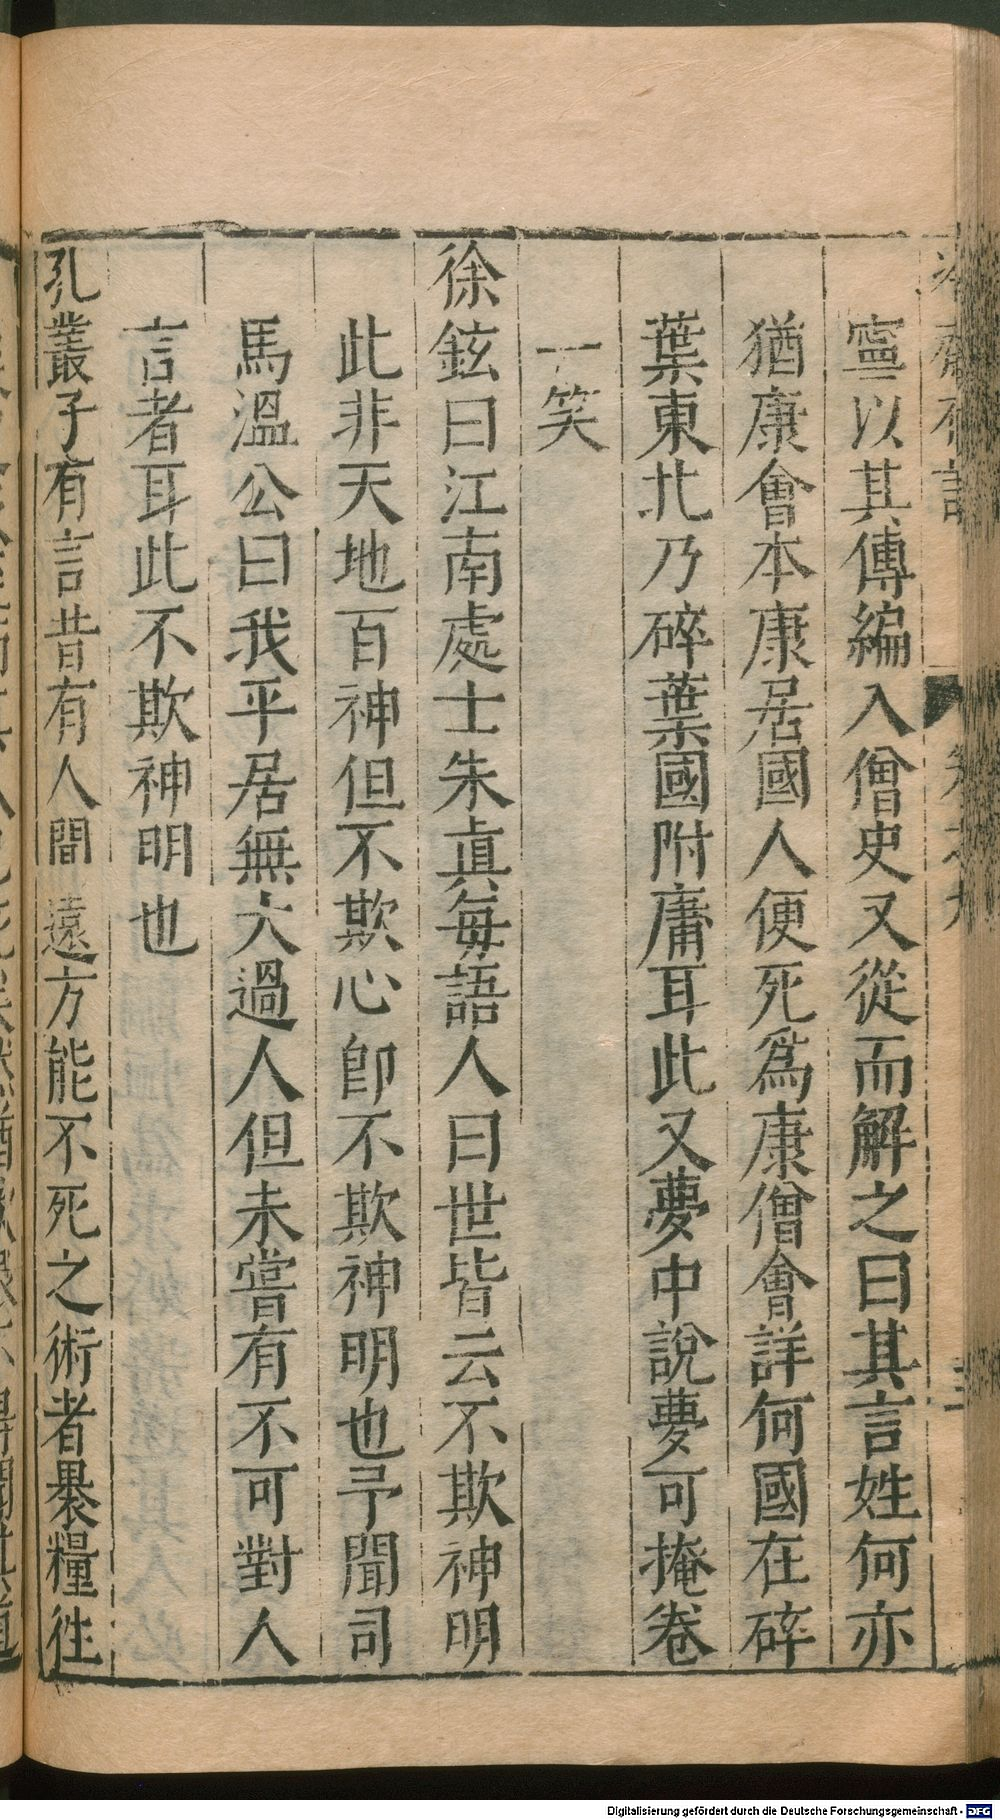 寧以其傳編入僧史又從而解之曰其言姓何亦
猶康會本康居國人便死爲康僧會詳何國在碎
葉東北乃碎葉國附庸耳此又夢中說夢可掩卷
一笑
徐鉉曰江南處士朱眞每語人曰世皆云不欺神明
此非天地百神但不欺心卽不欺神明也予聞司
馬溫公曰我平居無大過人但未嘗有不可對人
言者耳此不欺神明也
孔叢子有言昔有人間遠方能不死之術者褁糧徃
Digitalisierung gefördert durch die Deutsche Forschungsgemeinschaft - DFG